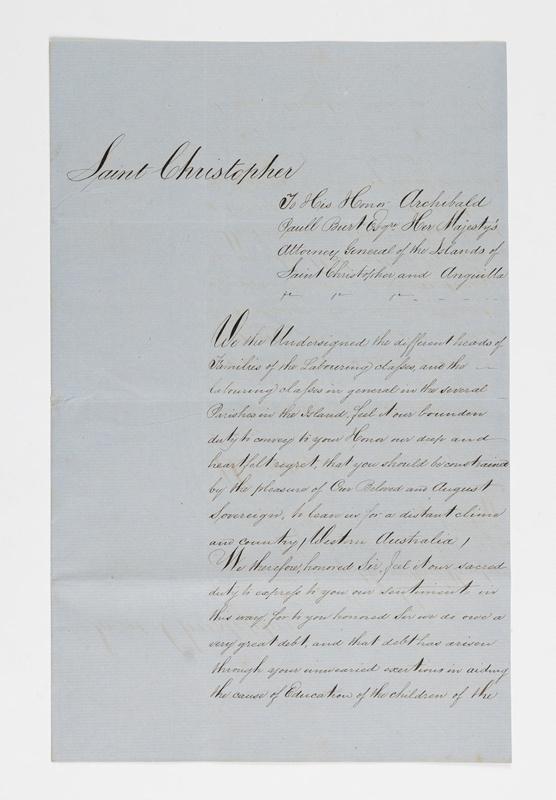 Saint Christopher
To His Honor Archibald
Paull Burt Esqre Her Majesty's
Attorney General of the Islands of
Saint Christopher and Anguilla
We the Undersigned the different heads of
Families of the Labouring classes, and the
labouring classes in general in the several
Parishes in the Island, feel it our bounden
duty to convey to your Honor our deep and
heartfelt regret, that you should be constrained
by the pleasure of Our Beloved and August
Sovereign, to leave us for a distant clime
and country, (Western Australia)
We therefore, honored Sir, feel it our sacred
duty to express to you our sentiments in
this way, for to you honored Sir we do owe a
very great debt, and that debt has arisen
through your unwearied exertions in aiding
the cause of Education of the children of the